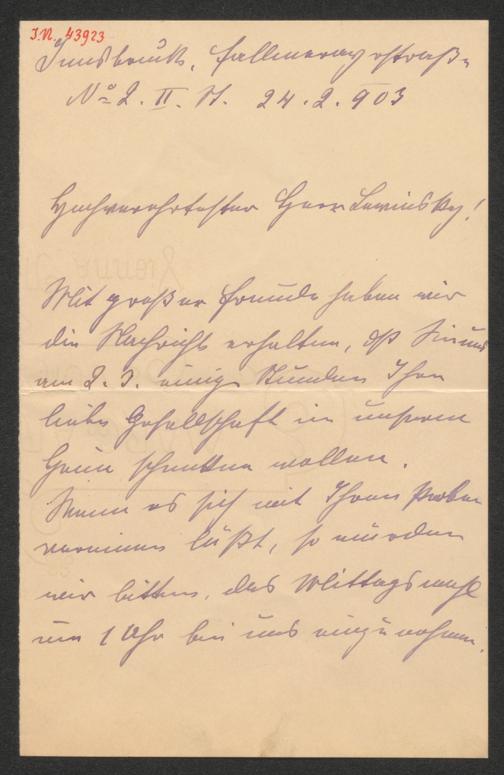 I.N. 43923
Innsbruck, Fallmerayerstraße
No 2. II. St. 24.2.903
Hochverehrtester Herr Lewinsky!
Mit großer Freude haben wir
die Nachricht erhalten, dß Sie uns
am 2. 3. einige Stunden Ihre
liebe Gesellschaft in unserem
Heim schenken wollen.
Wenn es sich mit Ihren Proben
vereinen läßt, so würden
wir bitten, das Mittagsmahl
um 1 Uhr bei uns einzunehmen.